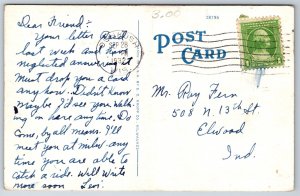 Dear Friend:-
Your letter rec'd
last week and have
neglected answering it
Must drop you a card
any how. Didn't know
Maybe I'd see you walk-
ing in here any time. Do
Come, by all means. I'll
meet you at miles any
time you are able to
catch a ride. Will write
more soon
POST
CARD
Mr. Ray Fern
508 N. 13th St.
Elwood
Ind.
3.00